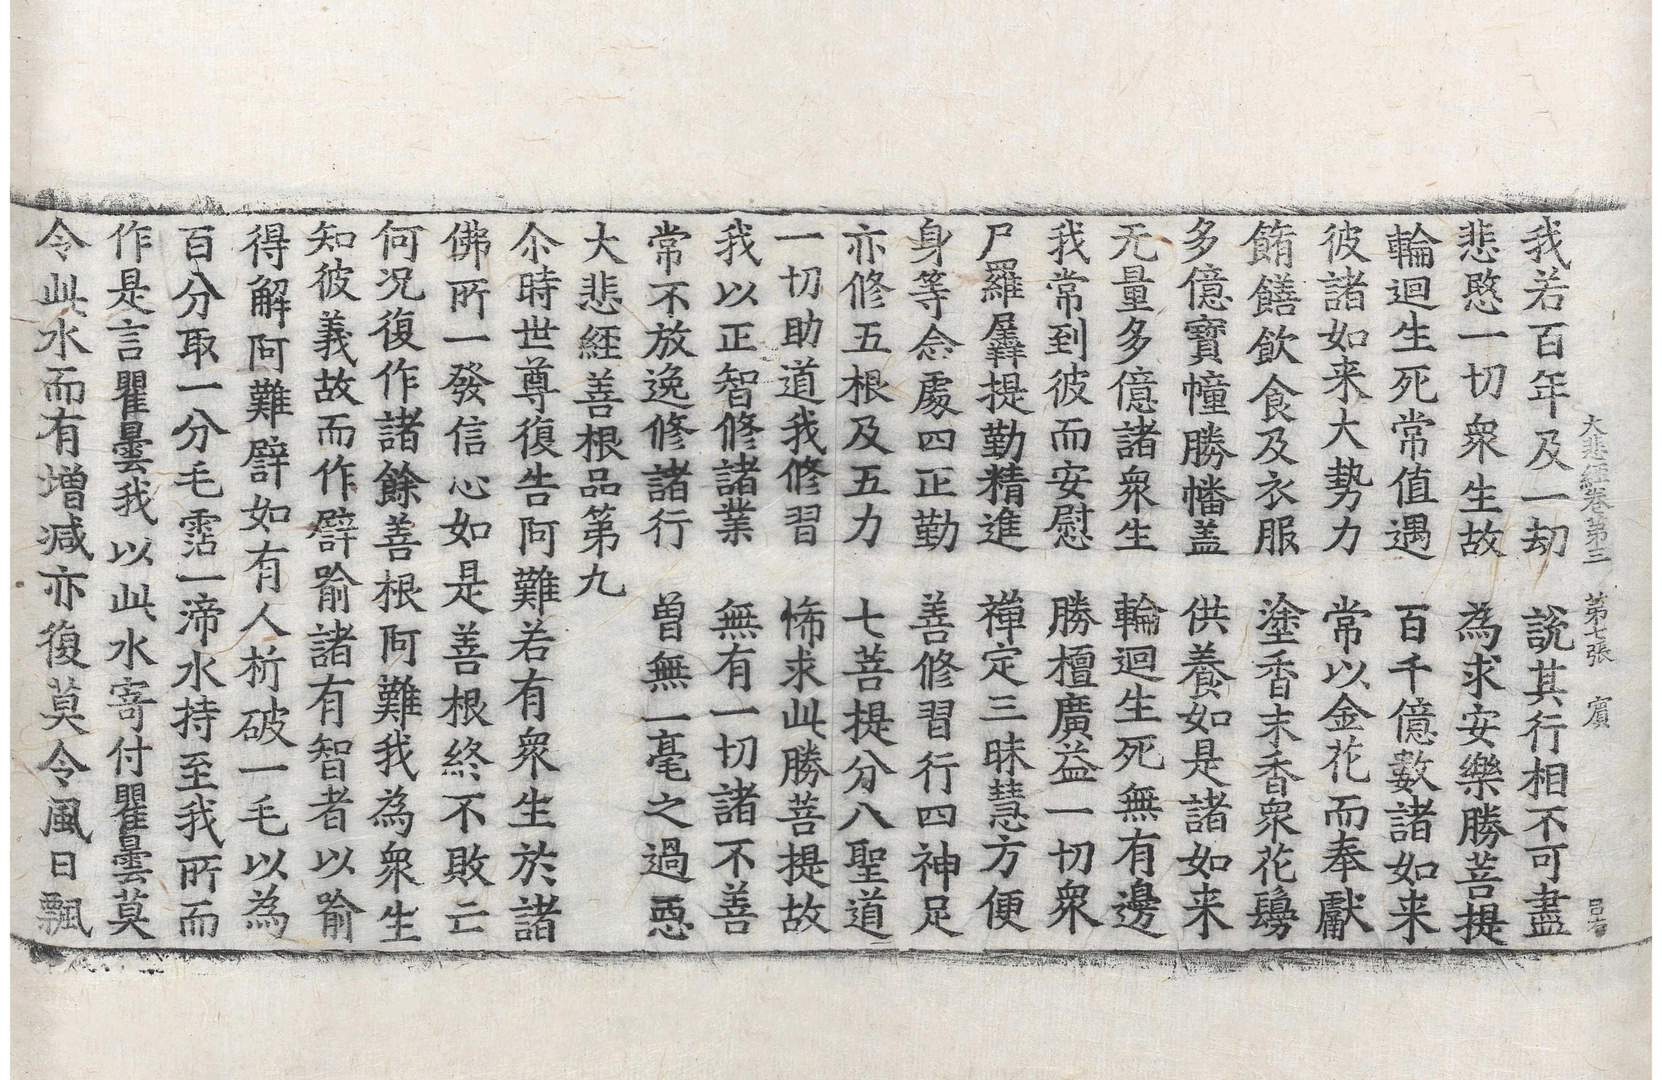 大悲經卷第三　第七張　賓
我若百年及一劫　說其行相不可盡
悲愍一切衆生故　為求安樂勝菩提
輪迴生死常值遇　百千億數諸如来
彼諸如来大勢力　常以金花而奉獻
餚饍飲食及衣服　塗香末香衆花鬘
多億寶幢勝幡盖　供養如是諸如来
无量多億諸衆生　輪迴生死無有邊
我常到彼而安慰　勝檀廣益一切衆
尸羅羼提勤精進　禪定三昧慧方便
身等念處四正勤　善修習行四神足
亦修五根及五力　七菩提分八聖道
一切助道我修習　悕求此勝菩提故
我以正智修諸業　無有一切諸不善
常不放逸修諸行　曾無一毫之過惡
大悲經善根品第九
尒時世尊復告阿難若有衆生於諸
佛所一發信心如是善根終不敗亡
何况復作諸餘善根阿難我為衆生
知彼義故而作譬喻諸有智者以喻
得解阿難譬如有人析破一毛以為
百分取一分毛霑一渧水持至我所而
作是言瞿曇我以此水寄付瞿曇莫
令此水而有增減亦復莫令風日飄